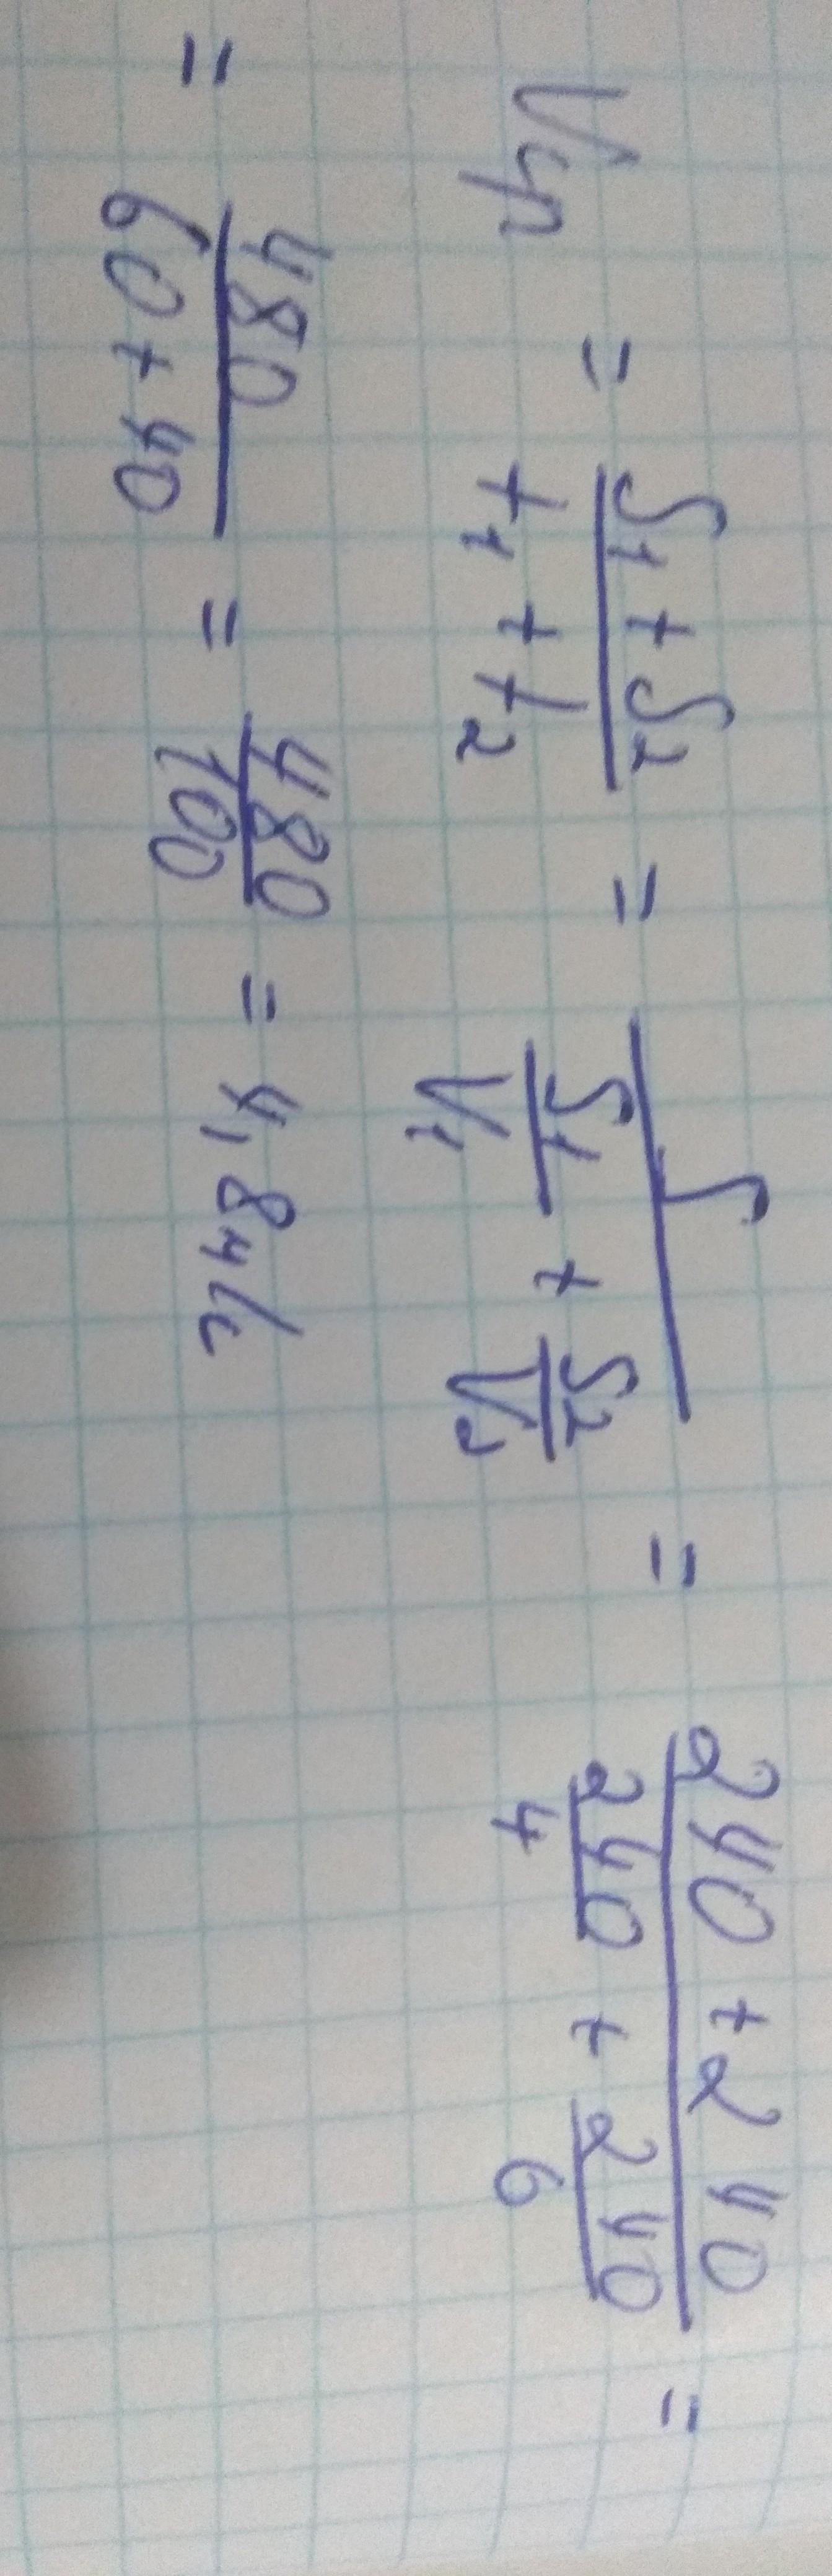 Vср = (S₁ + S₂)/(t₁ + t₂) = S/(S₁/V₁ + S₂/V₂) = (240 + 240)/(240/4 + 240/6) =
= 480/(60 + 40) = 480/100 = 4,8 м/с